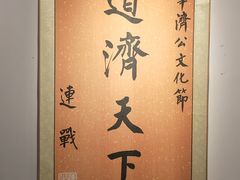 濟公文化節
道濟天下
連戰